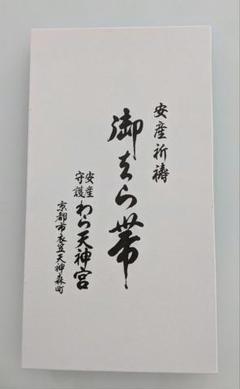 安産祈祷
御はら帯
安産守護わら天神宮
京都市衣笠天神森町